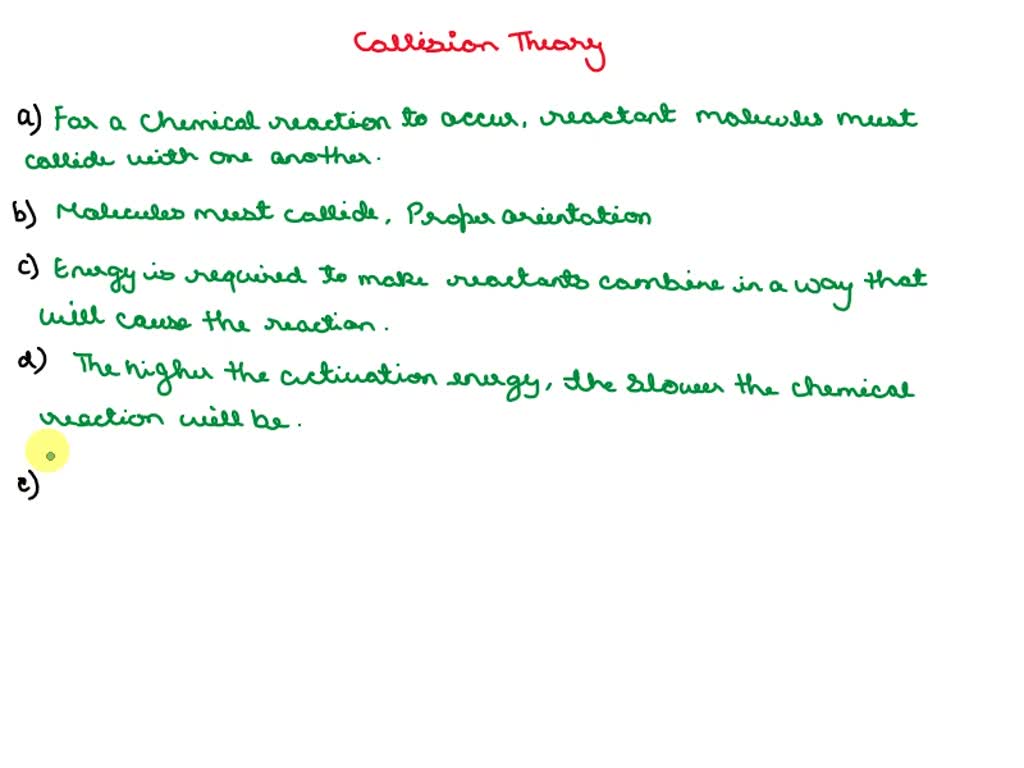 Collision Theory
a) For a chemical reaction to occur, reactant molecules must
collide with one another.
b) Molecules must collide, Proper orientation
c) Energy is required to make reactants combine in a way that
will cause the reaction.
d) The higher the activation energy, the slower the chemical
reaction will be.
e)